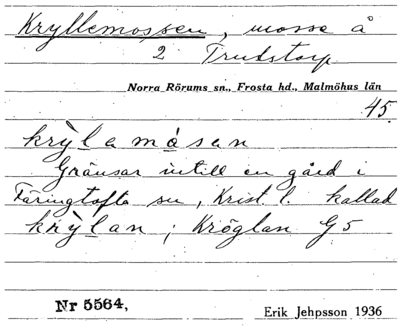 Kryllemossen, mosse å
2 Trulstorp
Norra Rörums sn., Frosta hd., Malmöhus län
45.
krỳlamåsan
Gränsar intill en gård i
Färingtofta sn, Krist. l. kallad
krỳlan; Kröglan G5
Nr 5564,
Erik Jehpsson 1936